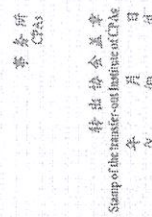 事 务 所
CPAs
转 出 协 会 盖 章
Stamp of the transfer-out Institute of CPAs
年 月 日